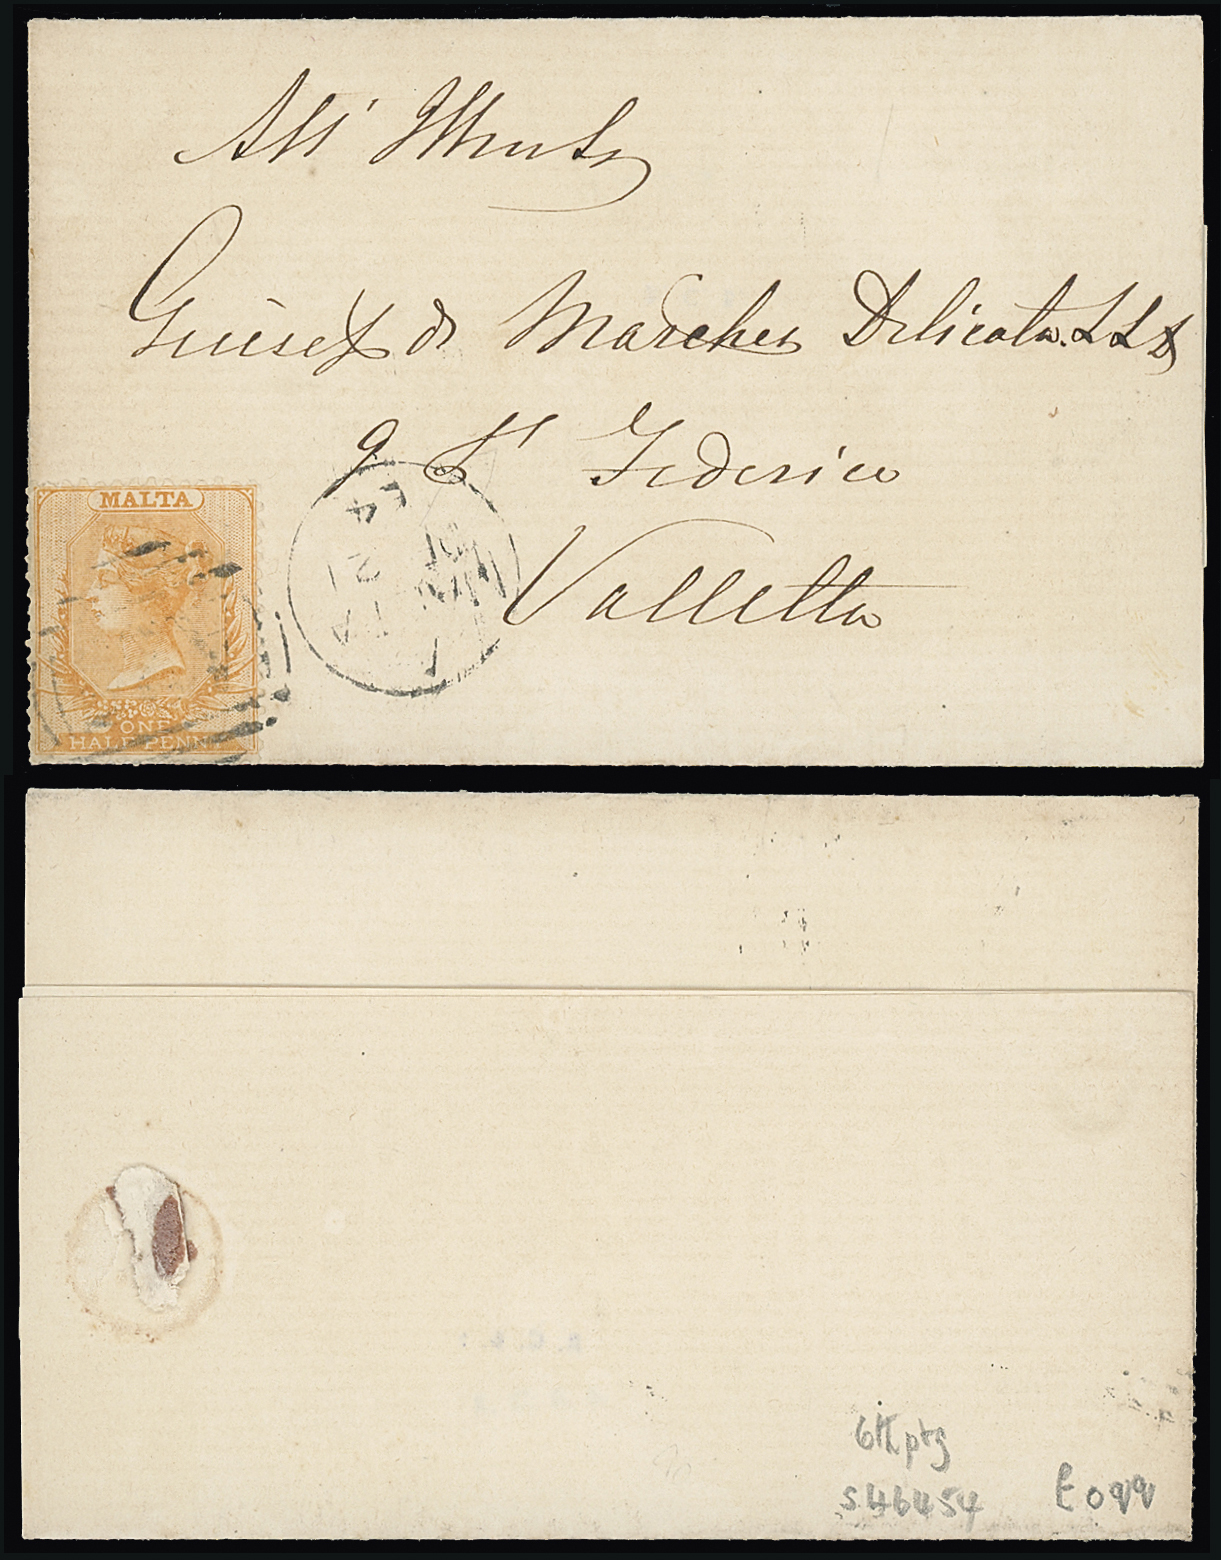 All' Illmo Sr
Giusepe de Marchesi Delicata. LLD
9 Sr Federico
Valletta
MALTA
ONE
HALF PENNY
E4
21
TA
6th ptg
S46454